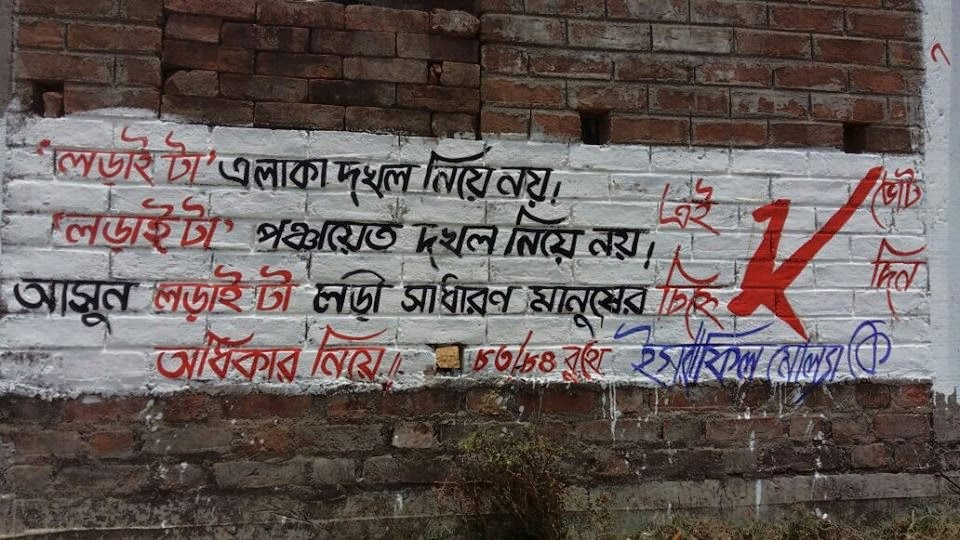 'লড়াই টা' এলাকা দখল নিয়ে নয়।
'লড়াই টা' পঞ্চায়েত দখল নিয়ে নয়।
আসুন লড়াই টা লড়ী সাধারণ মানুষের
অধিকার নিয়ে।।
৮৩/৮৪ বুথে
এই
চিহ্নে
ভোট
দিন
ইসরাফিল মোল্যা কে